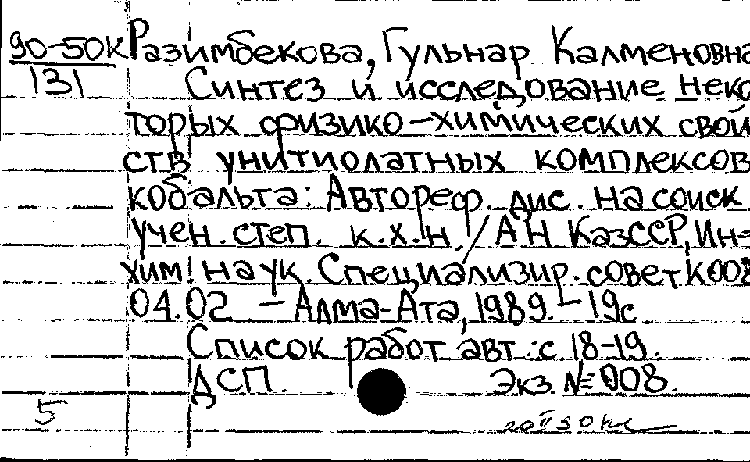 90-50к Разимбекова, Гульнар Калменовна
131 Синтез и исследование неко
торых физико-химических свой
ств унитиолатных комплексов
кобальта: Автореф. дис. на соиск
учен. степ. к.х.н. / АН КазССР, Ин-
хим! наук. Специализир. совет К008
04.02 – Алма-Ата, 1989. – 19с
Список работ авт.: с 18-19.
ДСП. Экз. №008.
5